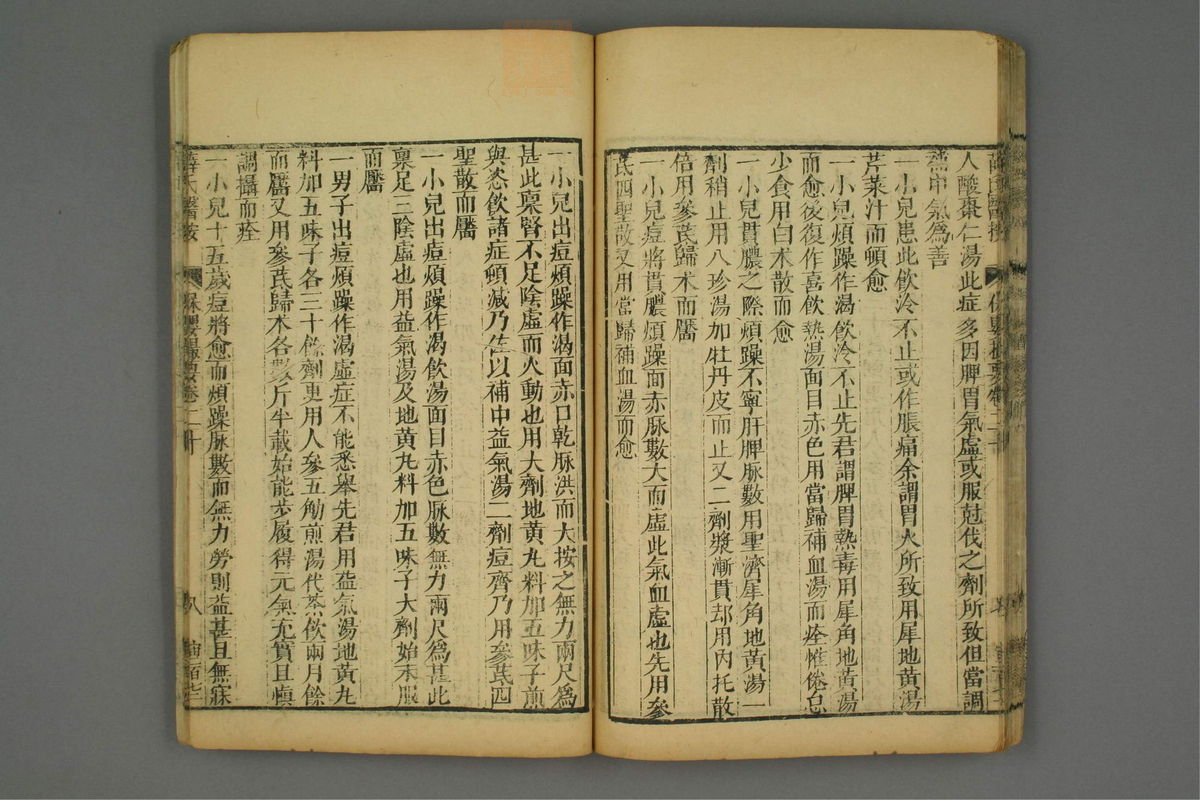 人酸棗仁湯此症多因脾胃氣虛或服尅伐之劑所致但當調
燕中氣爲善
一小兒患此飲冷不止或作脹痛余謂胃火所致用犀地黃湯
芹菜汁而頓愈
一小兒煩躁作渴飲冷不止先君謂脾胃熱毒用犀角地黃湯
而愈後復作喜飲熱湯面目赤色用當歸補血湯而痊惟倦怠
少食用白朮散而愈
一小兒貫膿之際煩躁不寧肝脾脉數用聖濟犀角地黃湯一
劑稍止用八珍湯加牡丹皮而止又二劑漿漸貫却用內托散
倍用參芪歸朮而靨
一小兒痘將貫膿煩躁面赤脉數大而虛此氣血虛也先用參
芪四聖散又用當歸補血湯而愈
一小兒出痘煩躁作渴面赤口乾脉洪而大按之無力兩尺爲
甚此稟腎不足陰虛而火動也用大劑地黃丸料加五味子煎
與恣飲諸症頓減乃佐以補中益氣湯二劑痘齊乃用參芪四
聖散而靨
一小兒出痘煩躁作渴飲湯面目赤色脉數無力兩尺爲甚此
稟足三陰虛也用益氣湯及地黃丸料加五味子大劑始末服
而靨
一男子出痘煩躁作渴虛症不能悉舉先君用益氣湯地黃丸
料加五味子各三十餘劑更用人參五觔煎湯代茶飲兩月餘
而靨又用參芪歸朮各數斤半載始能步履得元氣充實且慎
調攝而痊
一小兒十五歲痘將愈而煩躁脉數而無力勞則益甚且無寐
薛氏醫按 保嬰撮要卷二十 八